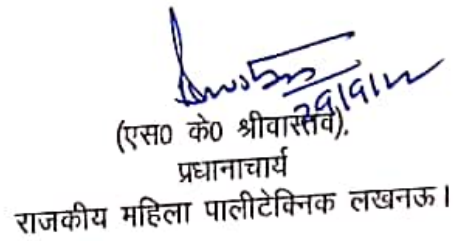 29/9/22
(एस0 के0 श्रीवास्तव).
प्रधानाचार्य
राजकीय महिला पालीटेक्निक लखनऊ।